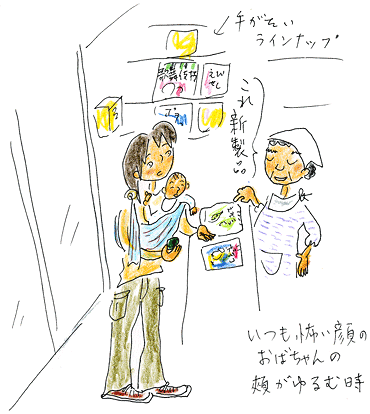 手がそい
ラインナップ
えび
せん
これ
新製品
いつも怖い顔の
おばちゃんの
頬がゆるむ時